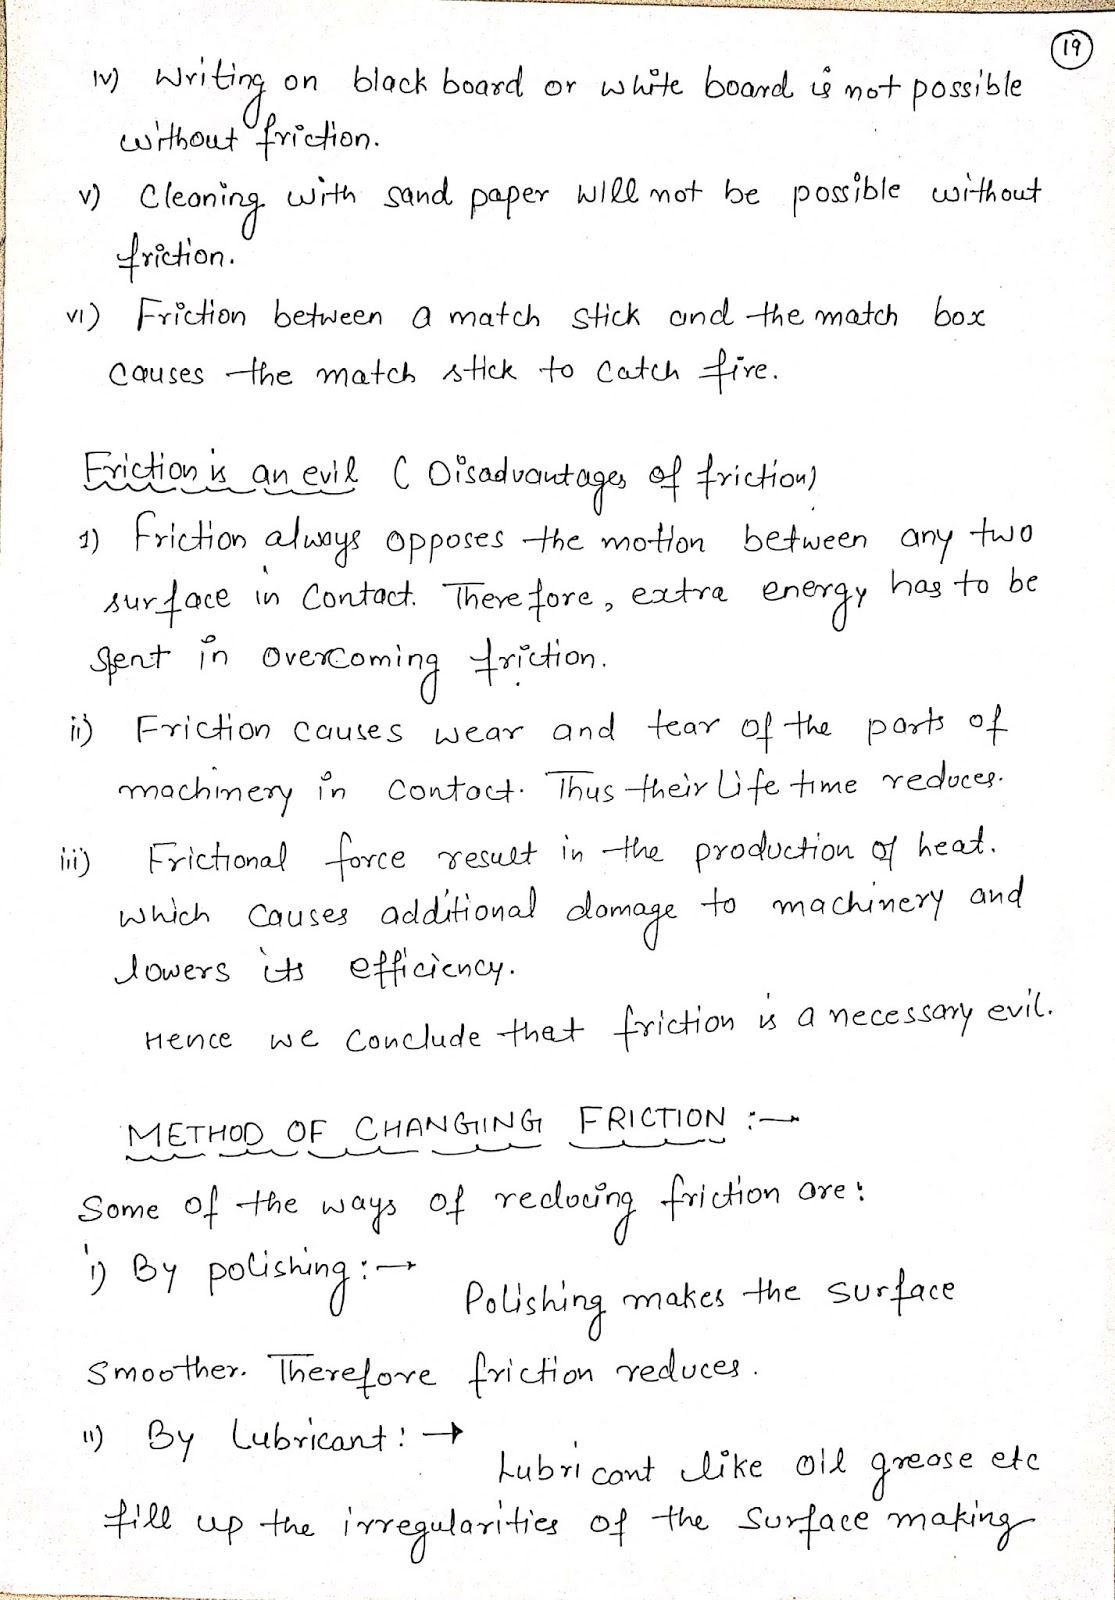 19
iv) Writing on black board or white board is not possible
without friction.
v) Cleaning with sand paper will not be possible without
friction.
vi) Friction between a match stick and the match box
causes the match stick to catch fire.
Friction is an evil ( Disadvantages of friction)
1) Friction always opposes the motion between any two
surface in contact. Therefore, extra energy has to be
spent in overcoming friction.
ii) Friction causes wear and tear of the parts of
machinery in contact. Thus their life time reduces.
iii) Frictional force result in the production of heat.
which causes additional damage to machinery and
lowers its efficiency.
Hence we conclude that friction is a necessary evil.
METHOD OF CHANGING FRICTION :→
Some of the ways of reducing friction are:
i) By polishing :→
Polishing makes the surface
smoother. Therefore friction reduces.
ii) By Lubricant: →
Lubricant like oil grease etc
fill up the irregularities of the surface making